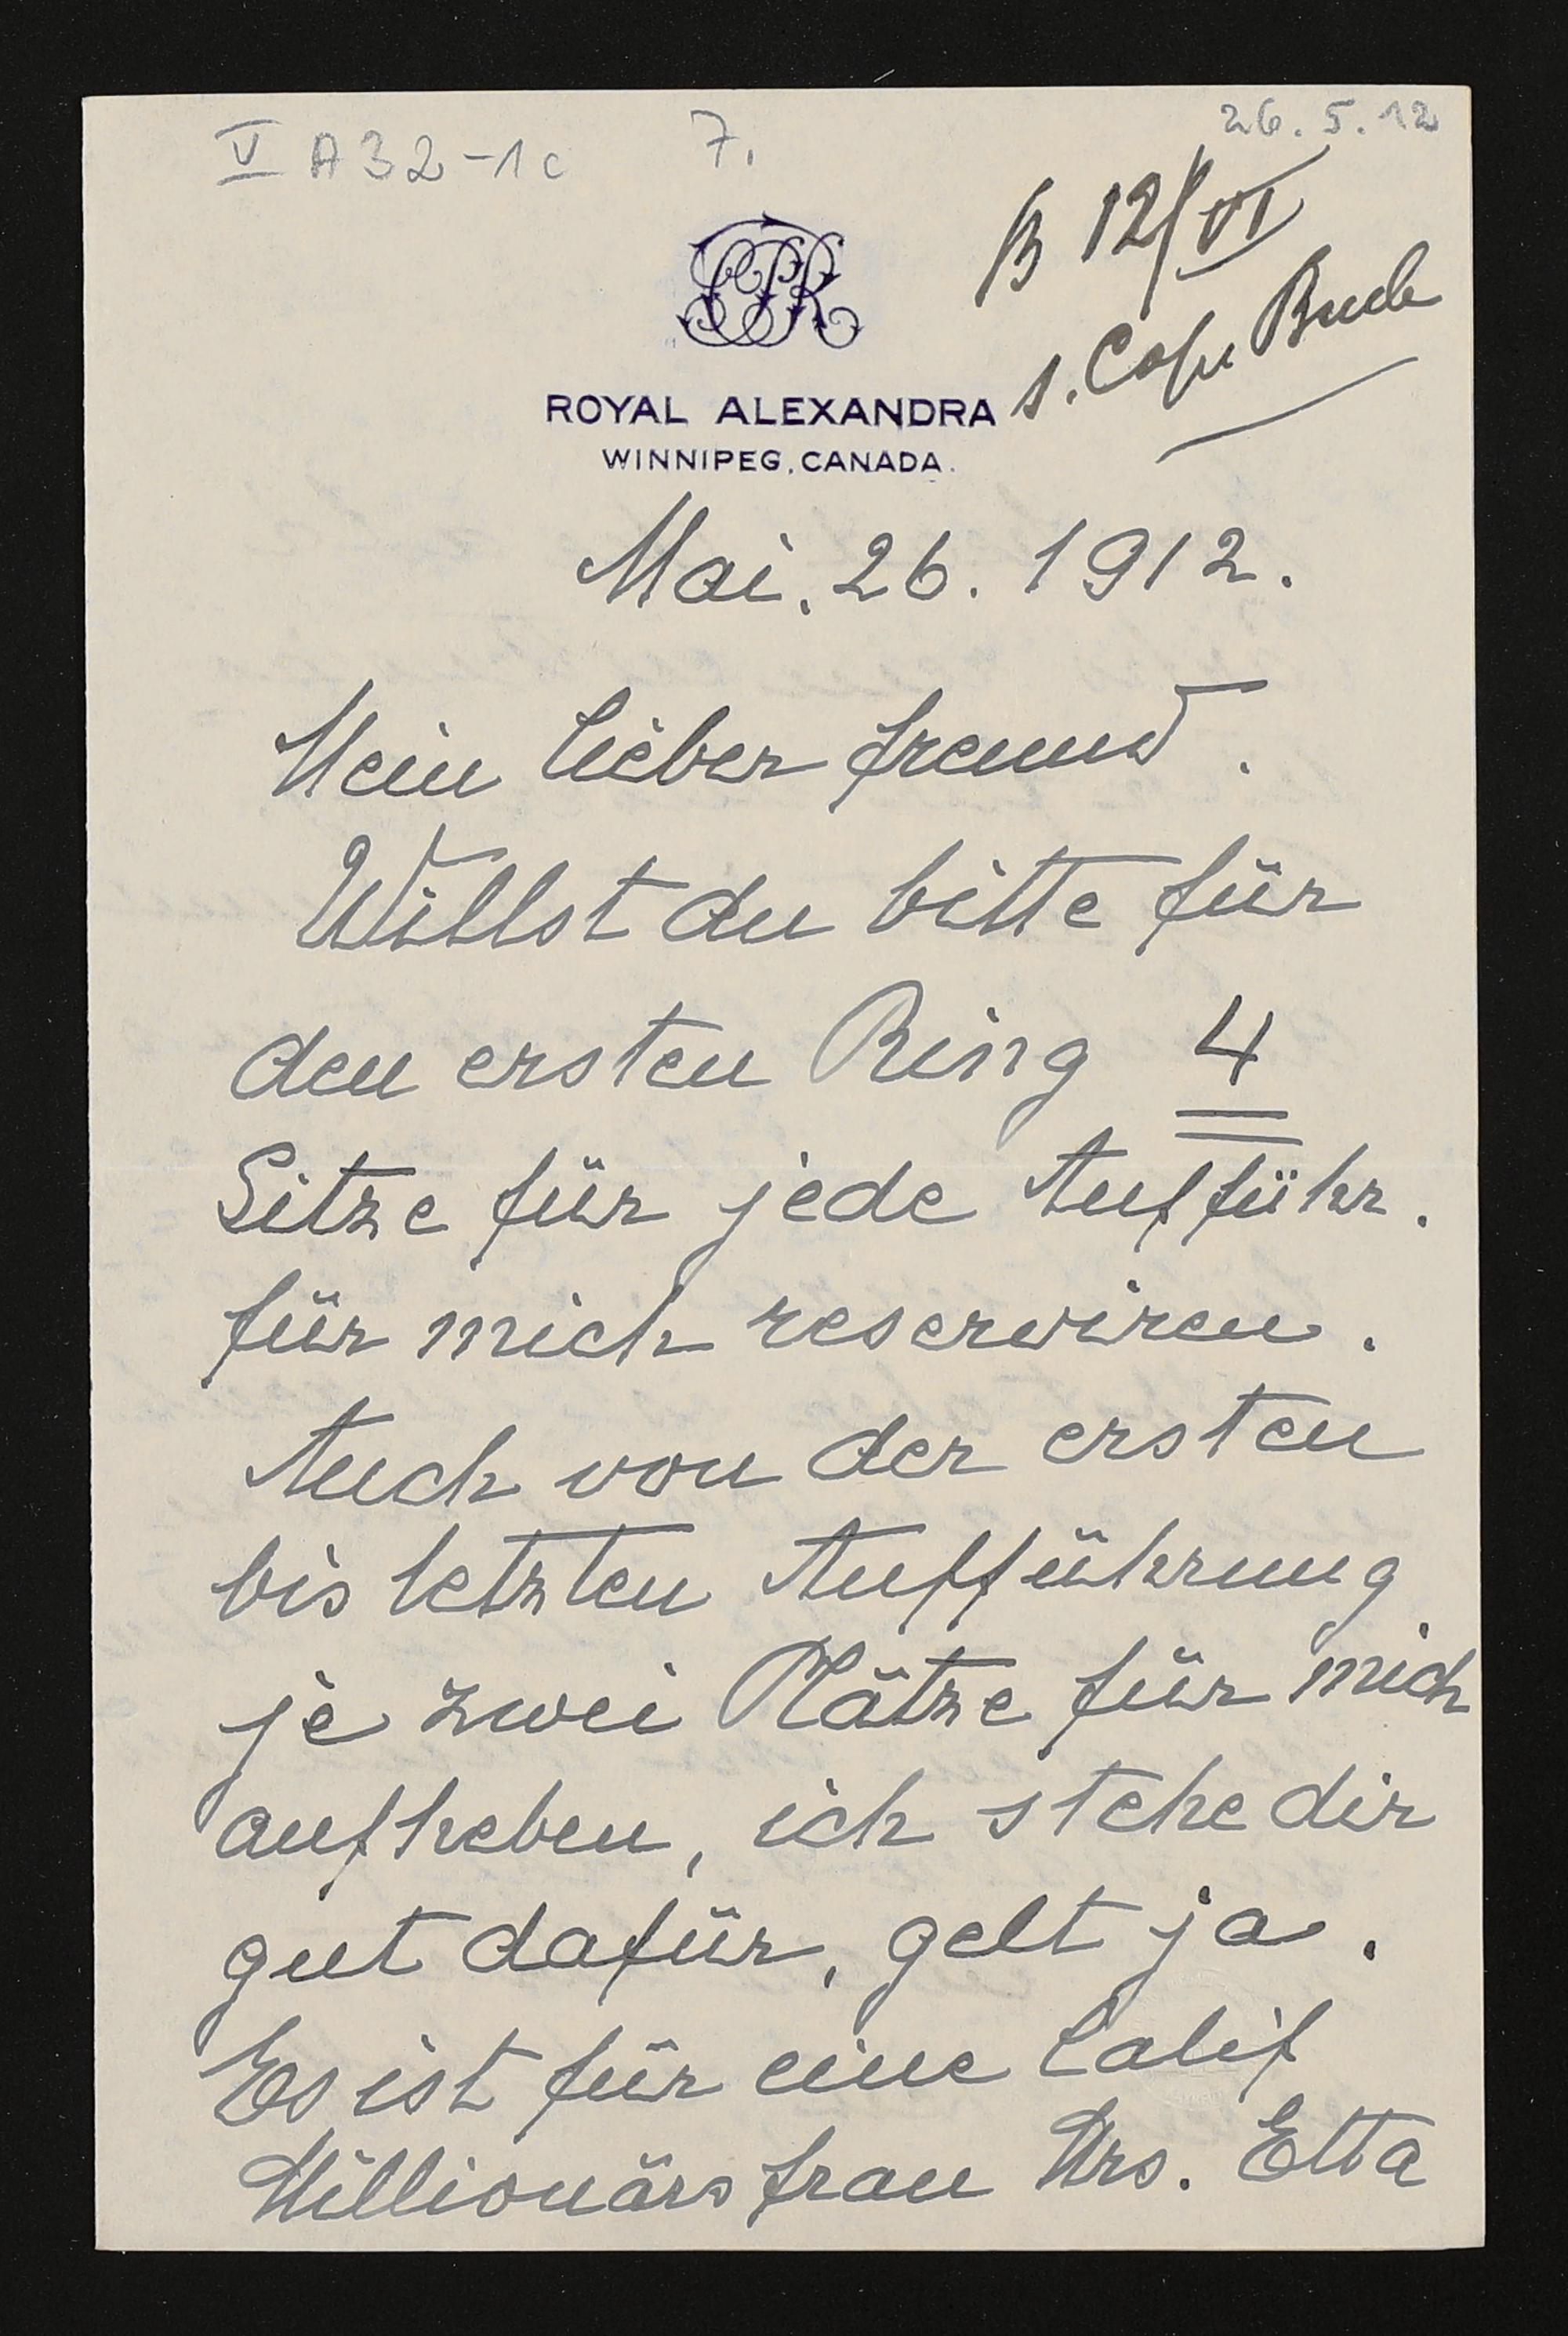 V A 32-1c 7. 26.5.12
B 12/VI
s. Copir Buch
CPR
ROYAL ALEXANDRA
WINNIPEG, CANADA.
Mai. 26. 1912.
Mein lieber Freund.
Willst du bitte für
den ersten Ring 4
Sitze für jede Aufführ.
für mich reserviren.
Auch von der ersten
bis letzten Aufführung
je zwei Plätze für mich
aufheben, ich stehe dir
gut dafür, gelt ja.
Es ist für eine Calif
Millionärsfrau Mrs. Etta